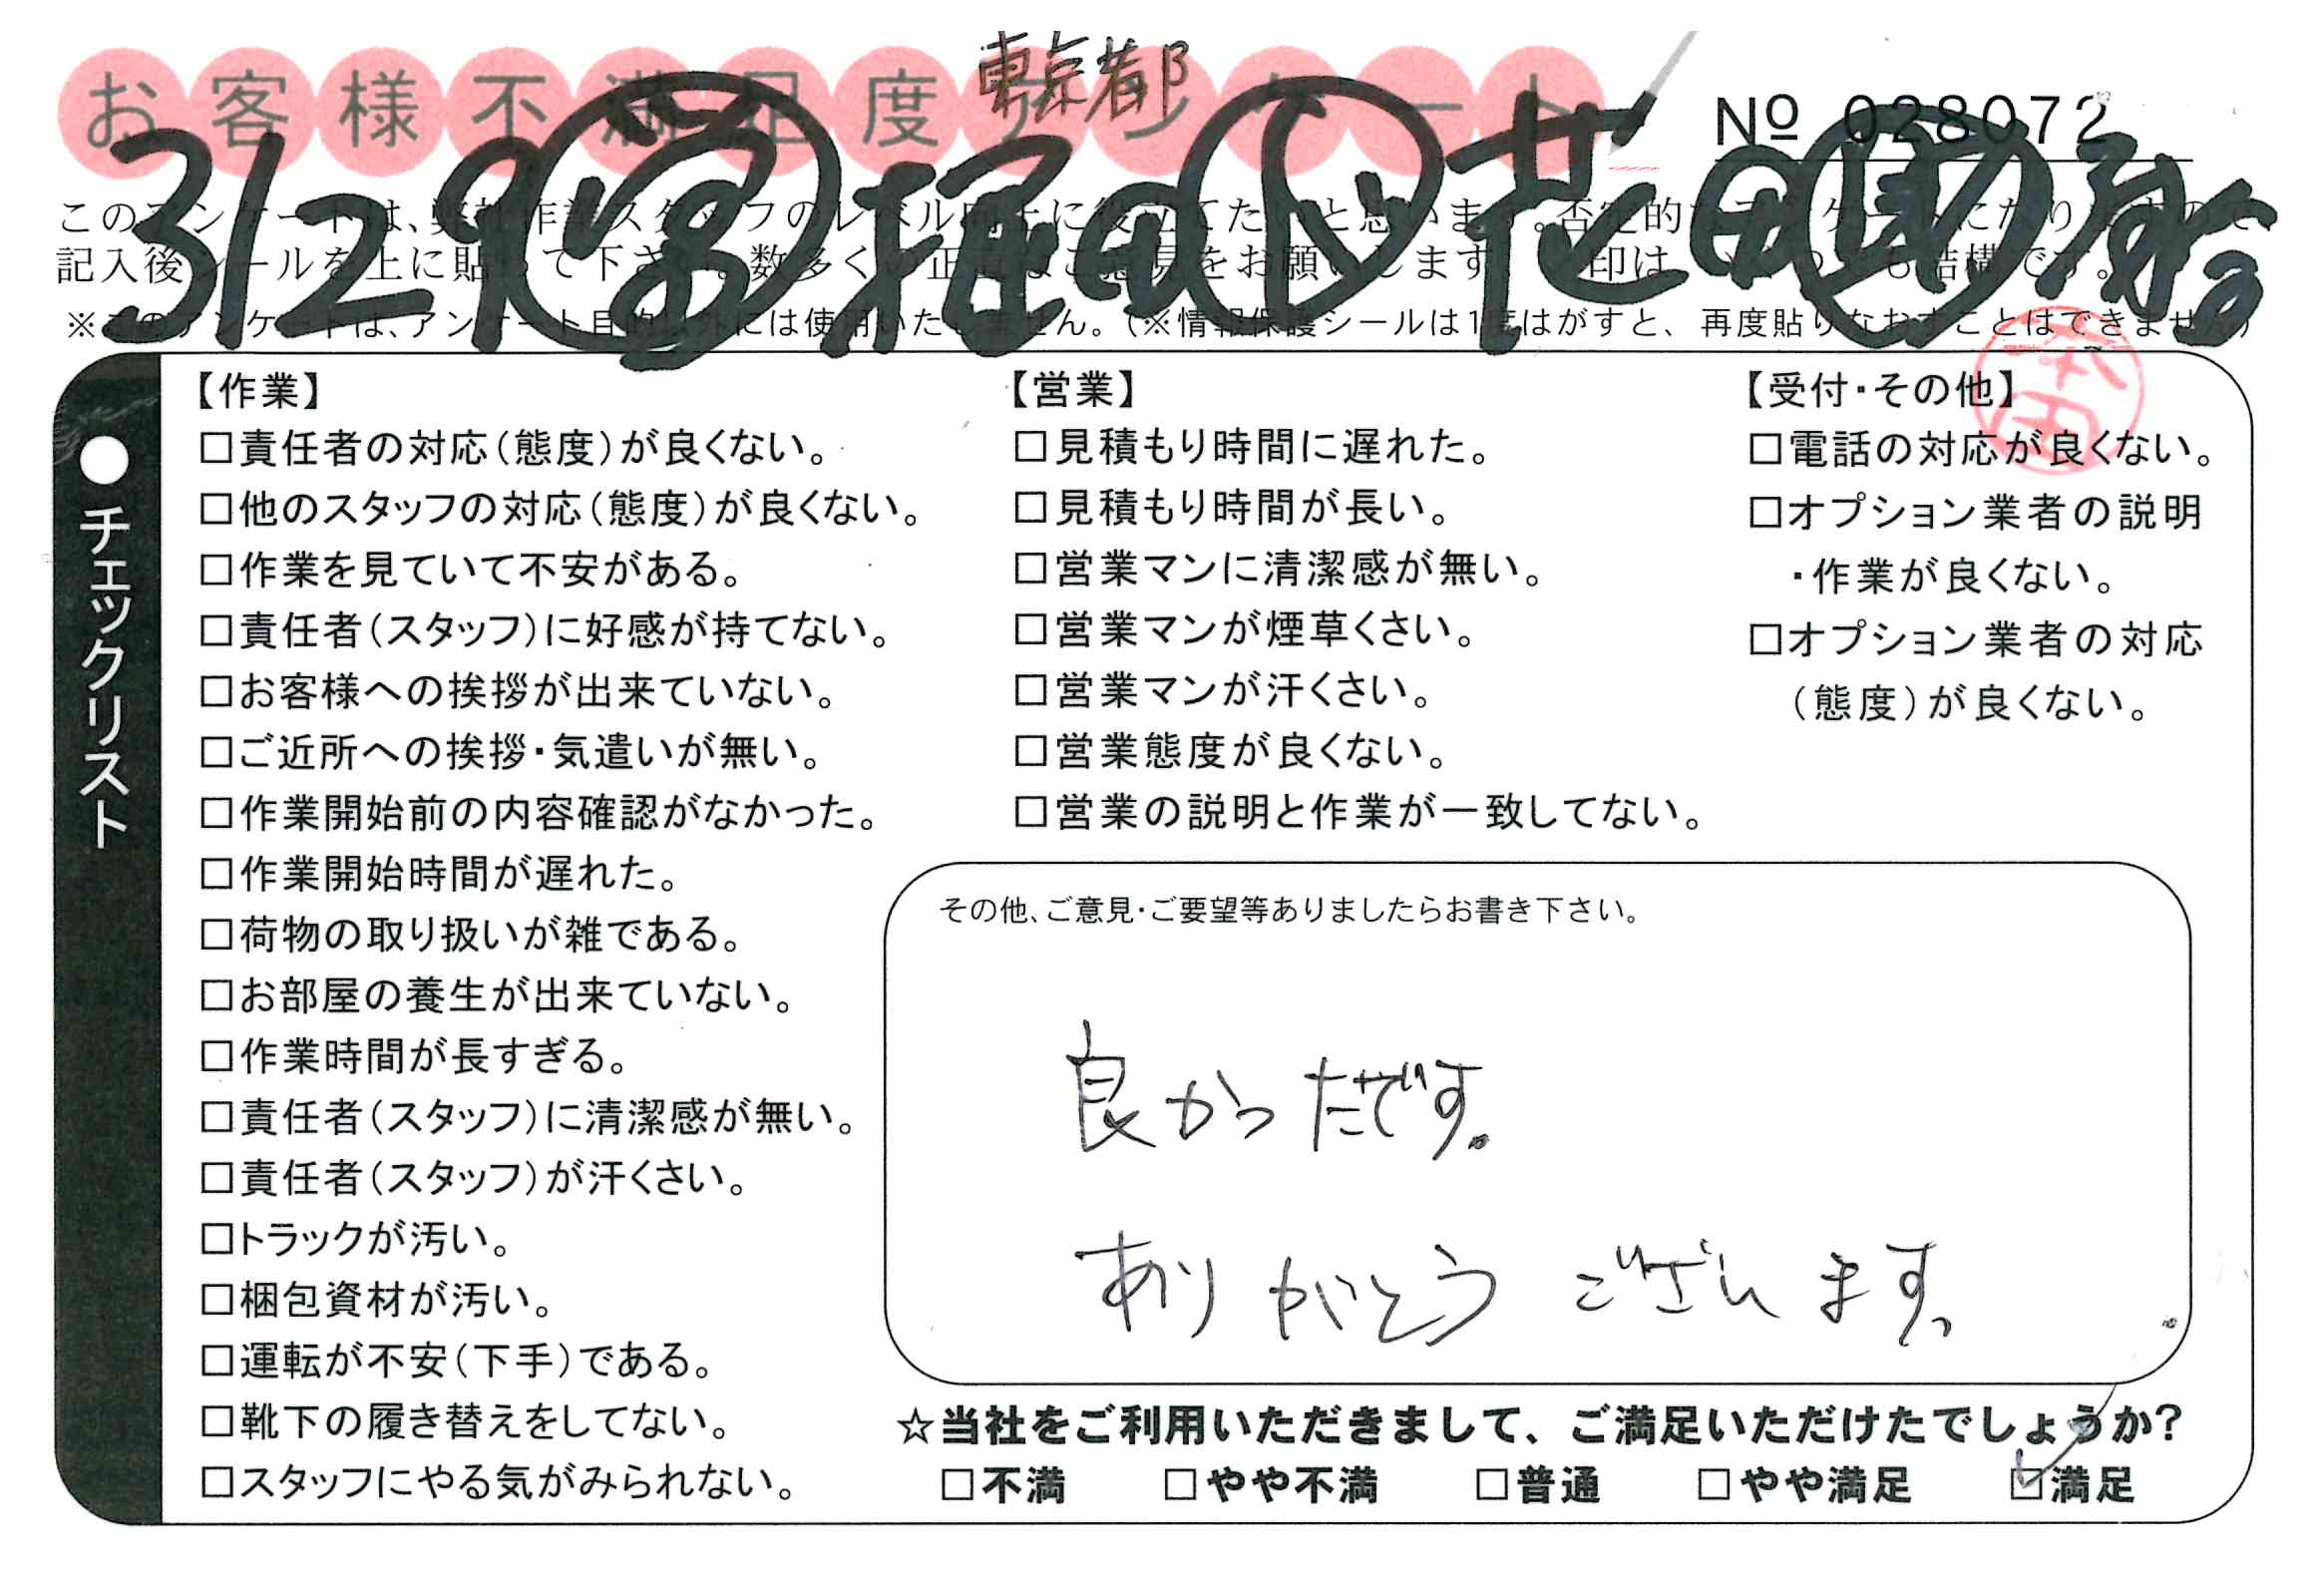 東京都
お客様不満足度アンケート
No 028072
3/29 堀田 花田
このアンケートは、弊社作業スタッフのレベル向上に役立てたいと思います。否定的なアンケートになりますので、
記入後シールを上に貼って下さい。数多くの正直なご意見をお願いします。
※このアンケートは、アンケート目的以外には使用いたしません。(※情報保護シールは1度はがすと、再度貼りなおすことはできません)
本田
●チェックリスト
【作業】
□責任者の対応(態度)が良くない。
□他のスタッフの対応(態度)が良くない。
□作業を見ていて不安がある。
□責任者(スタッフ)に好感が持てない。
□お客様への挨拶が出来ていない。
□ご近所への挨拶・気遣いが無い。
□作業開始前の内容確認がなかった。
□作業開始時間が遅れた。
□荷物の取り扱いが雑である。
□お部屋の養生が出来ていない。
□作業時間が長すぎる。
□責任者(スタッフ)に清潔感が無い。
□責任者(スタッフ)が汗くさい。
□トラックが汚い。
□梱包資材が汚い。
□運転が不安(下手)である。
□靴下の履き替えをしてない。
□スタッフにやる気がみられない。
【営業】
□見積もり時間に遅れた。
□見積もり時間が長い。
□営業マンに清潔感が無い。
□営業マンが煙草くさい。
□営業マンが汗くさい。
□営業態度が良くない。
□営業の説明と作業が一致してない。
【受付・その他】
□電話の対応が良くない。
□オプション業者の説明
・作業が良くない。
□オプション業者の対応
(態度)が良くない。
その他、ご意見・ご要望等ありましたらお書き下さい。
良かったです。
ありがとうございます。
☆当社をご利用いただきまして、ご満足いただけたでしょうか?
□不満 □やや不満 □普通 □やや満足 ☑満足